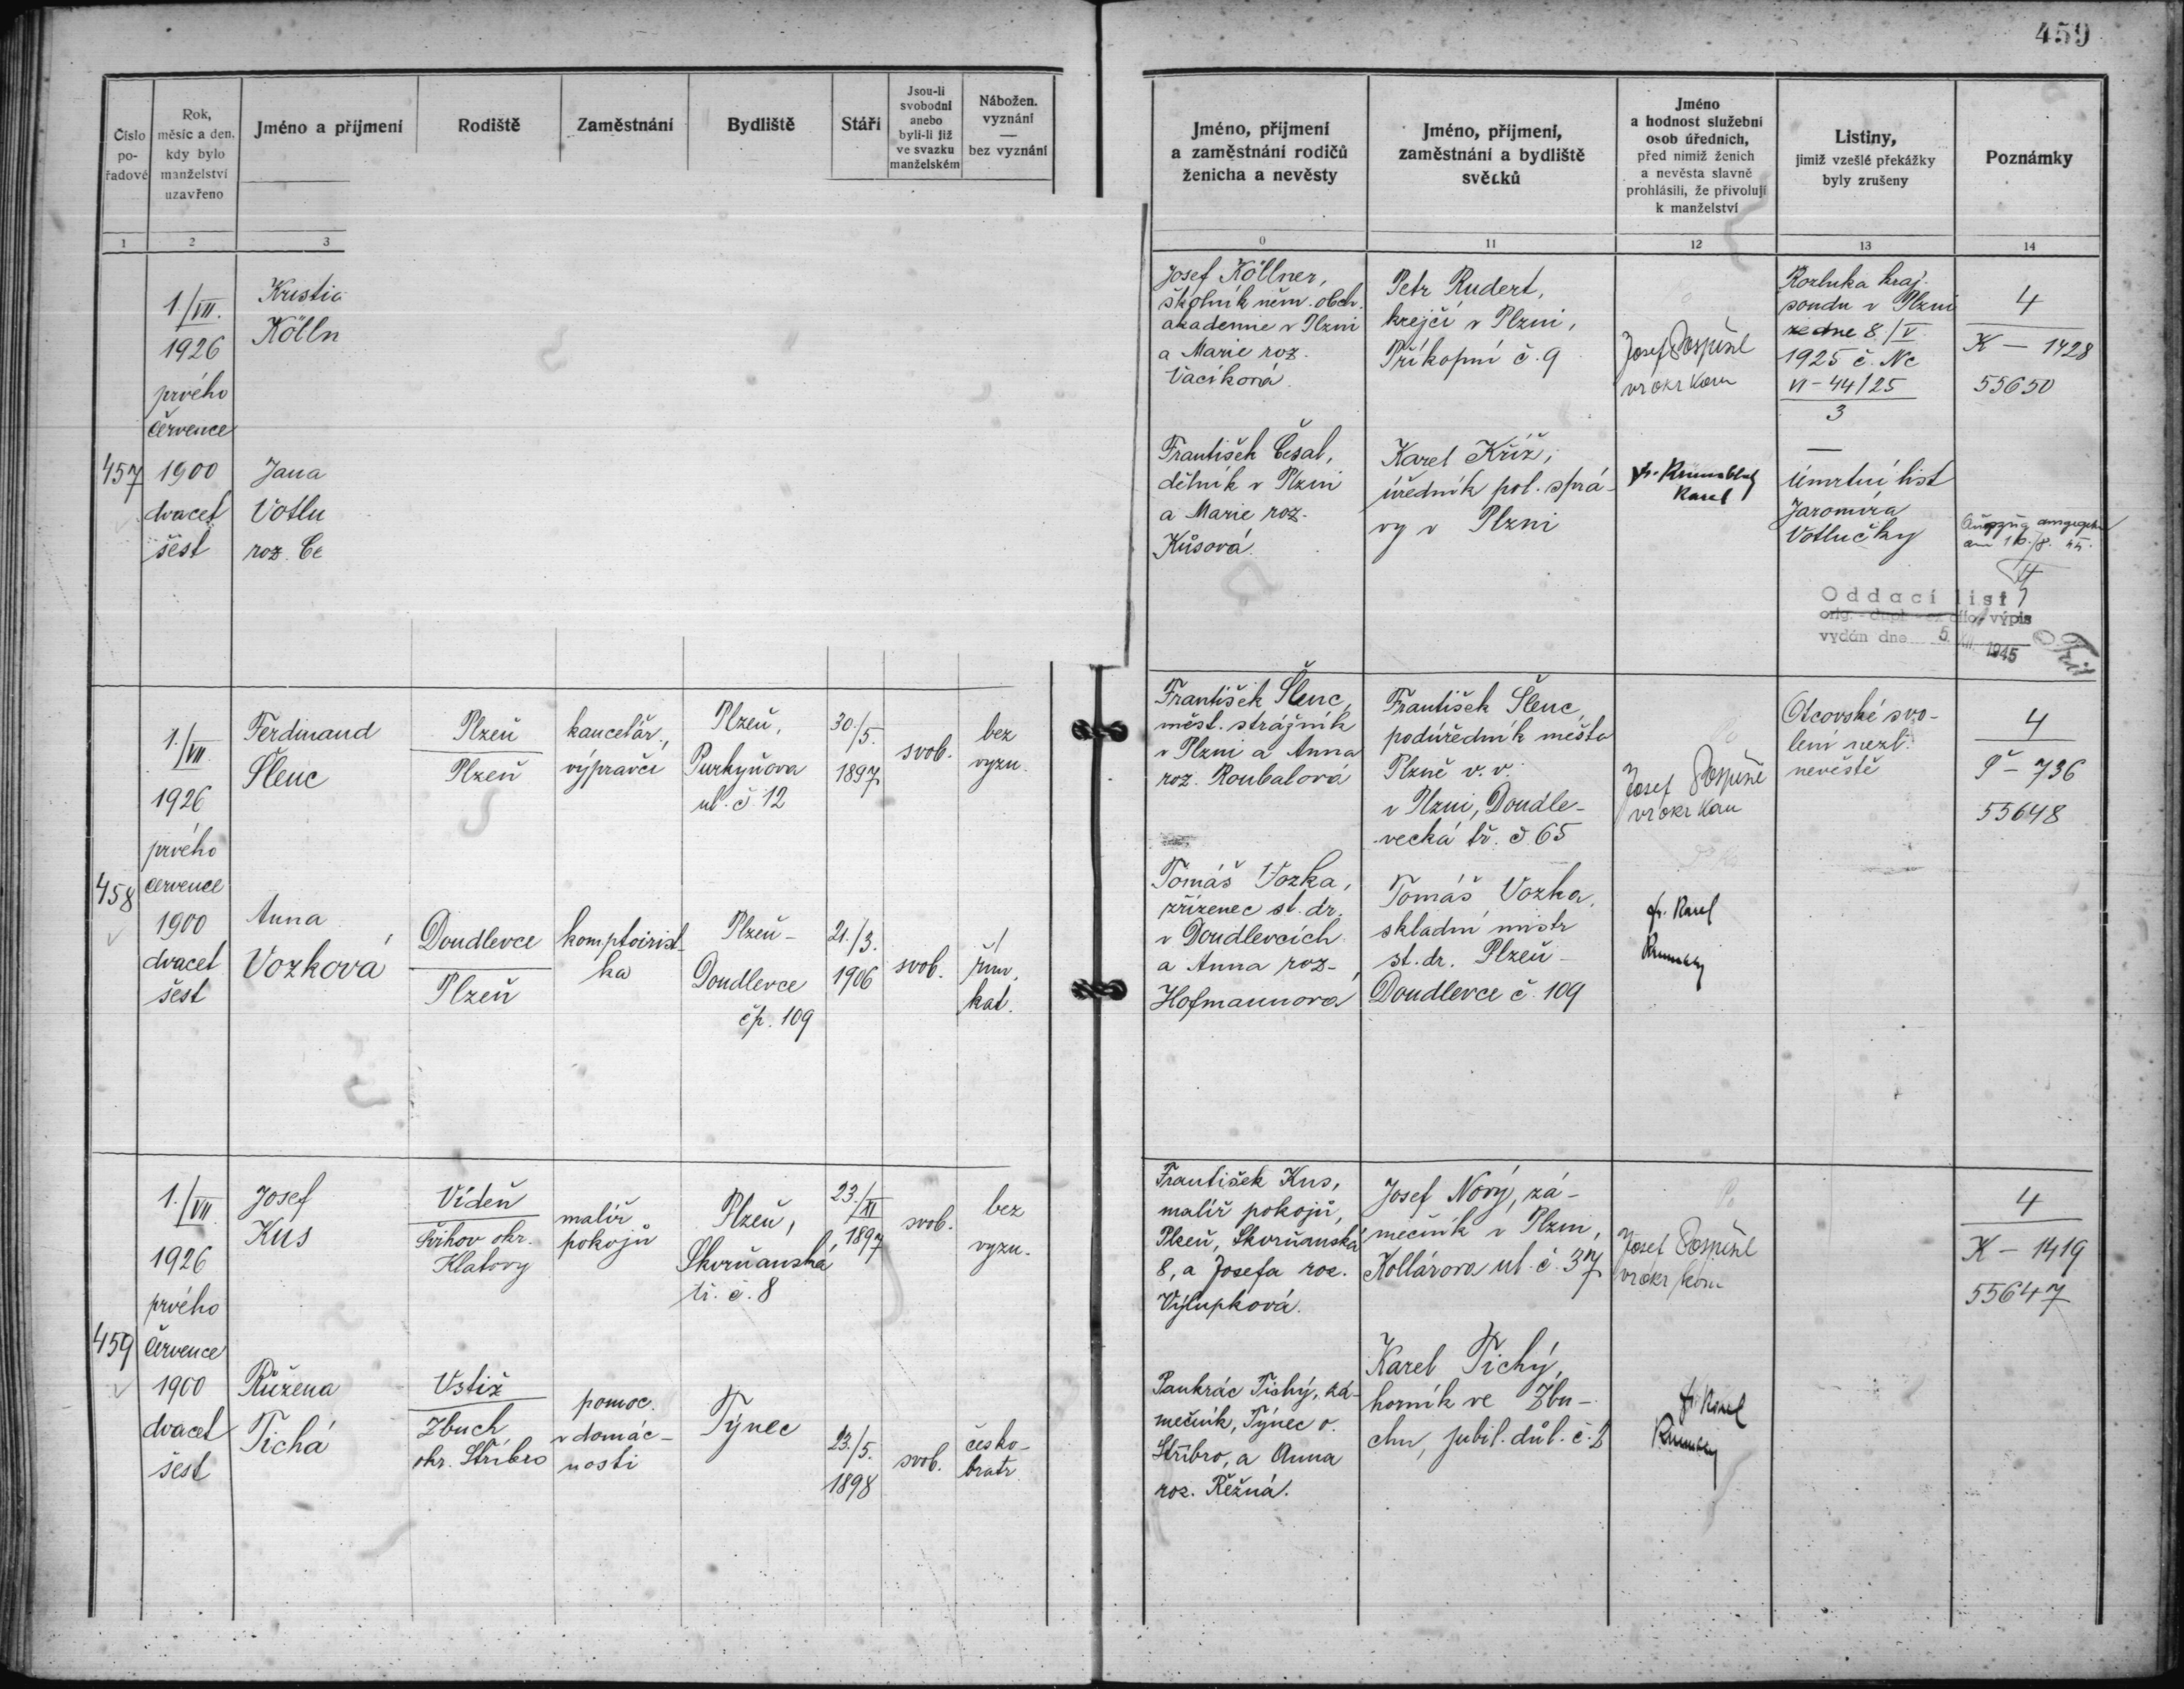 459
Číslo
po-
řadové
Rok,
měsíc a den,
kdy bylo
manželství
uzavřeno
Jméno a příjmení
Rodiště
Zaměstnání
Bydliště
Stáří
Jsou-li
svobodni
anebo
byli-li již
ve svazku
manželském
Nábožen.
vyznání
—
bez vyznání
Jméno, příjmení
a zaměstnání rodičů
ženicha a nevěsty
Jméno, příjmení,
zaměstnání a bydliště
svědků
Jméno
a hodnost služební
osob úředních,
před nimiž ženich
a nevěsta slavně
prohlásili, že přivolují
k manželství
Listiny,
jimiž vzešlé překážky
byly zrušeny
Poznámky
1
2
3
0
11
12
13
14
457
1/VII.
1926
prvého
července
1900
dvacet
šest
Kristia
Kölln
Jana
Votlu
roz. Če
Josef Köllner,
školník něm. obch.
akademie v Plzni
a Marie roz.
Vacíková.
František Česal,
dělník v Plzni
a Marie roz.
Kůsová.
Petr Rudert,
krejčí v Plzni,
Příkopní č. 9
Karel Kříž,
úředník pol. sprá-
vy v Plzni
Josef Pospíšil
vr okr kom
Karel
Rozluka kraj.
soudu v Plzni
ze dne 8./V.
1925 č. Nc
VI-44/25
3
—
Úmrtní list
Jaromíra
Votlučky
4
K — 1428
55650
am 16./8. 44.
Oddací list
výpis
vydán dne 5. XII. 1945
458
1./VII.
1926
prvého
července
1900
dvacet
šest
Ferdinand
Šlenc
Plzeň
Plzeň
kancelář.,
výpravčí
Plzeň,
Purkyňova
ul. č 12
30./5.
1897
svob.
bez
vyzn.
Anna
Vozková
Doudlevce
Plzeň
komptoirist-
ka
Plzeň-
Doudlevce
čp. 109
21./3.
1906
svob.
řím.
kat.
František Šlenc,
měst. strážník
v Plzni a Anna
roz. Roubalová
Tomáš Vozka,
zřízenec st. dr.
v Doudlevcích
a Anna roz-
Hofmannová
František Šlenc,
podúředník města
Plzně v. v.
v Plzni, Doudle-
vecká tř. č 65
Tomáš Vozka,
skladní mistr
st. dr. Plzeň-
Doudlevce č. 109
Josef Pospíšil
vr okr kom
Karel
Otcovské svo-
lení nezl.
nevěstě
4
Š — 736
55648
459
1./VII.
1926
prvého
července
1900
dvacet
šest
Josef
Kus
Vídeň
Švihov okr.
Klatovy
malíř
pokojů
Plzeň,
Skvrňanská
tř. č. 8
23./XI
1897
svob.
bez
vyzn.
Růžena
Tichá
Vstiž
Zbuch
okr. Stříbro
pomoc.
v domác-
nosti
Týnec
23./5.
1898
svob.
česko-
bratr
František Kus,
malíř pokojů,
Plzeň, Skvrňanská
8, a Josefa roz.
Výlupková.
Pankrác Tichý, zá-
mečník, Týnec o.
Stříbro, a Anna
roz. Řežná.
Josef Nový, zá-
mečník v Plzni,
Kollárova ul. č. 37
Karel Tichý,
horník ve Zbu-
chu, jubil. důl. č. 2
Josef Pospíšil
vr okr kom
Karel
4
K — 1419
55647